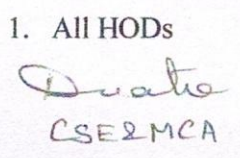 1. All HODs
CSE&MCA